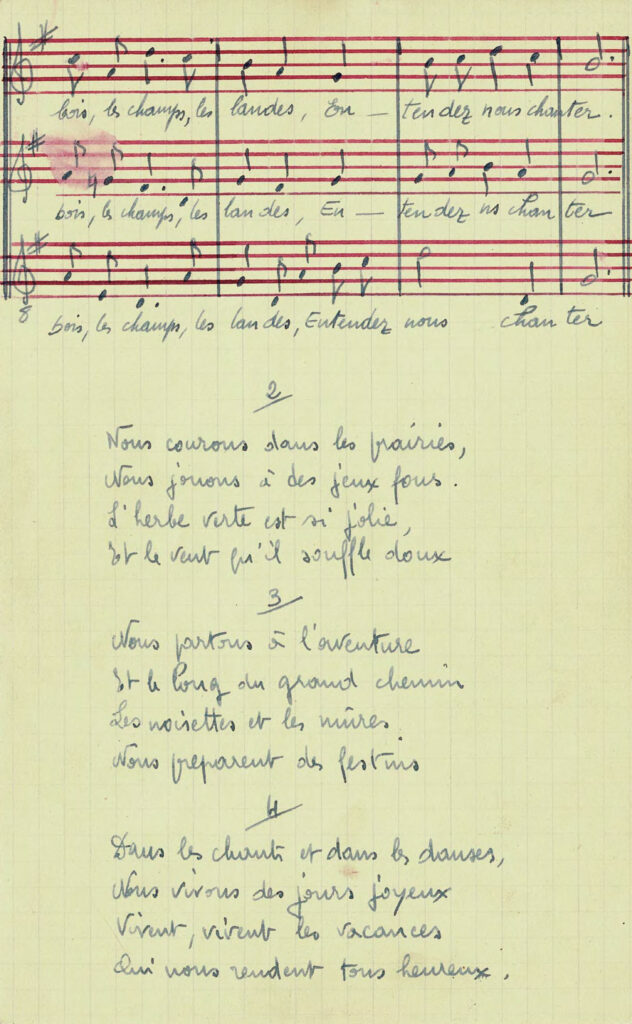 bois, les champs, les landes, En — tendez nous chanter.
bois, les champs, les landes, En — tendez ns chanter
8
bois, les champs, les landes, Entendez nous chanter
2
Nous courons dans les prairies,
Nous jouons à des jeux fous.
L'herbe verte est si jolie,
Et le vent qu'il souffle doux
3
Nous partons à l'aventure
Et le long du grand chemin
Les noisettes et les mûres
Nous préparent des festins
4
Dans les chants et dans les danses,
Nous vivons des jours joyeux
Vivent, vivent les vacances
Qui nous rendent tous heureux.